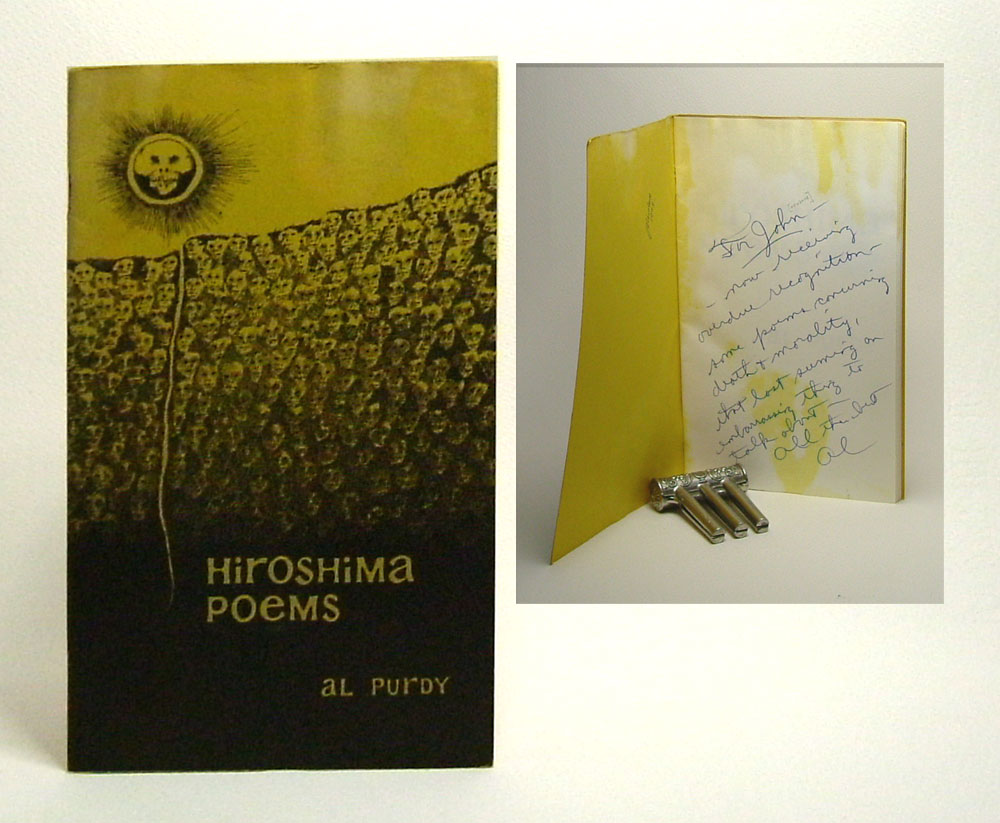 HiroSHiMa
POeMS
aL PUrDY
For John –
– now receiving
overdue recognition –
some poems concerning
death & morality,
that last seeming an
embarrassing thing to
talk about –
All the best
Al